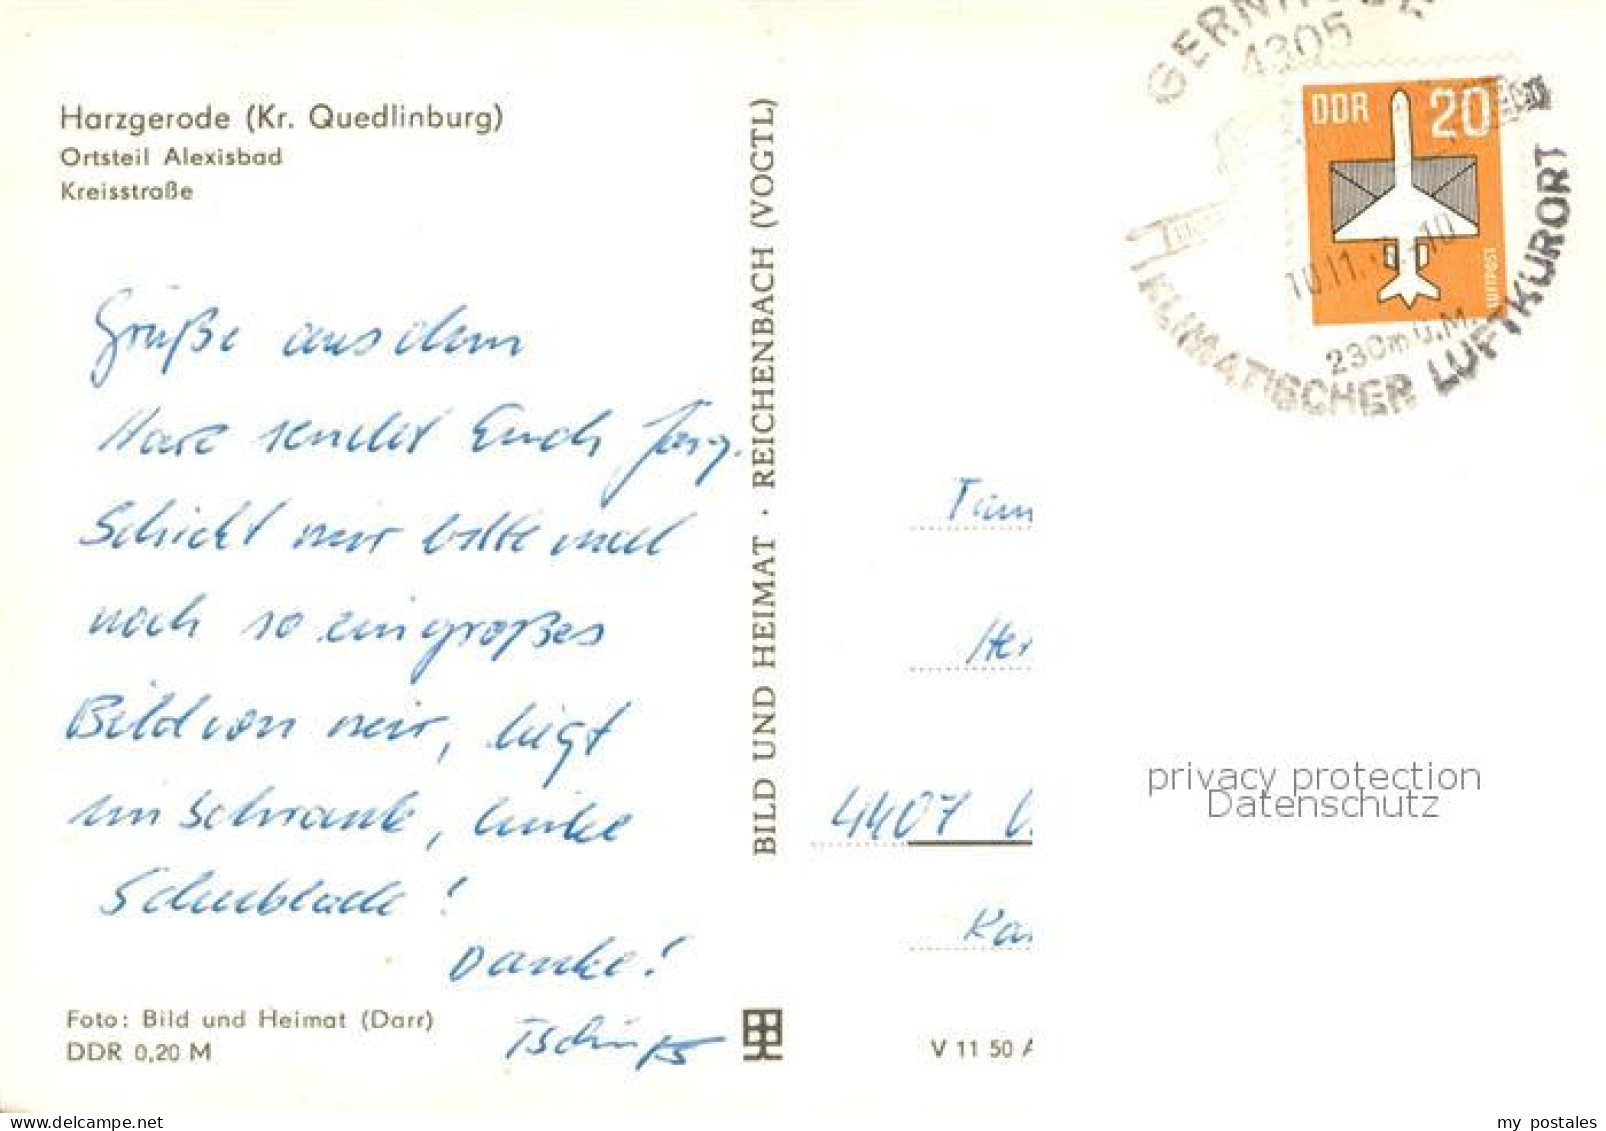 Harzgerode (Kr. Quedlinburg)
Ortsteil Alexisbad
Kreisstraße
Grüße aus dem
Harz sendet Euch Jörg.
Schickt mir bitte mal
noch so ein großes
Bild von mir, liegt
im Schrank, linke
Schublade!
Danke!
Tschüß
Foto: Bild und Heimat (Darr)
DDR 0,20 M
BILD UND HEIMAT · REICHENBACH (VOGTL)
4305
DDR 20
LUFTPOST
10.11.
230m ü.M.
KLIMATISCHER LUFTKURORT
Her
4407
Kar
V 11 50 A
privacy protection
Datenschutz
my postales